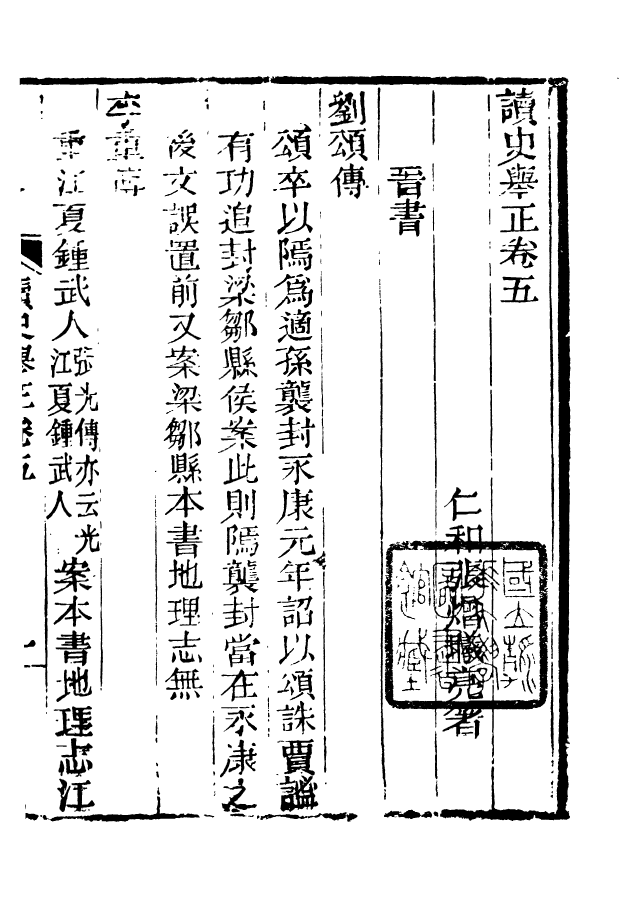 讀史舉正卷五
仁和張熷曦亮著
晉書
劉頌傳
頌卒以隝爲適孫襲封永康元年詔以頌誅賈謐
有功追封梁鄒縣侯案此則隝襲封當在永康之
後文誤置前又案梁鄒縣本書地理志無
李重傳
重江夏鍾武人張光傳亦云光江夏鍾武人案本書地理志江
讀史舉正卷五
一